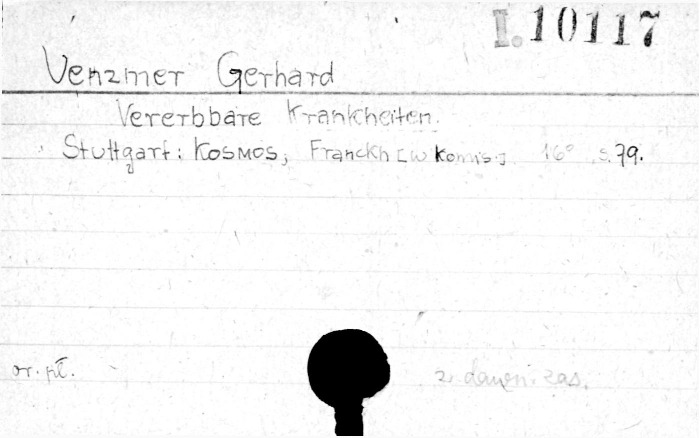 I. 10117
Venzmer Gerhard
Vererbbare Krankheiten.
Stuttgart: Kosmos, Franckh [w komis.] 16° s. 79.
or. pł.
z dawn. zas.